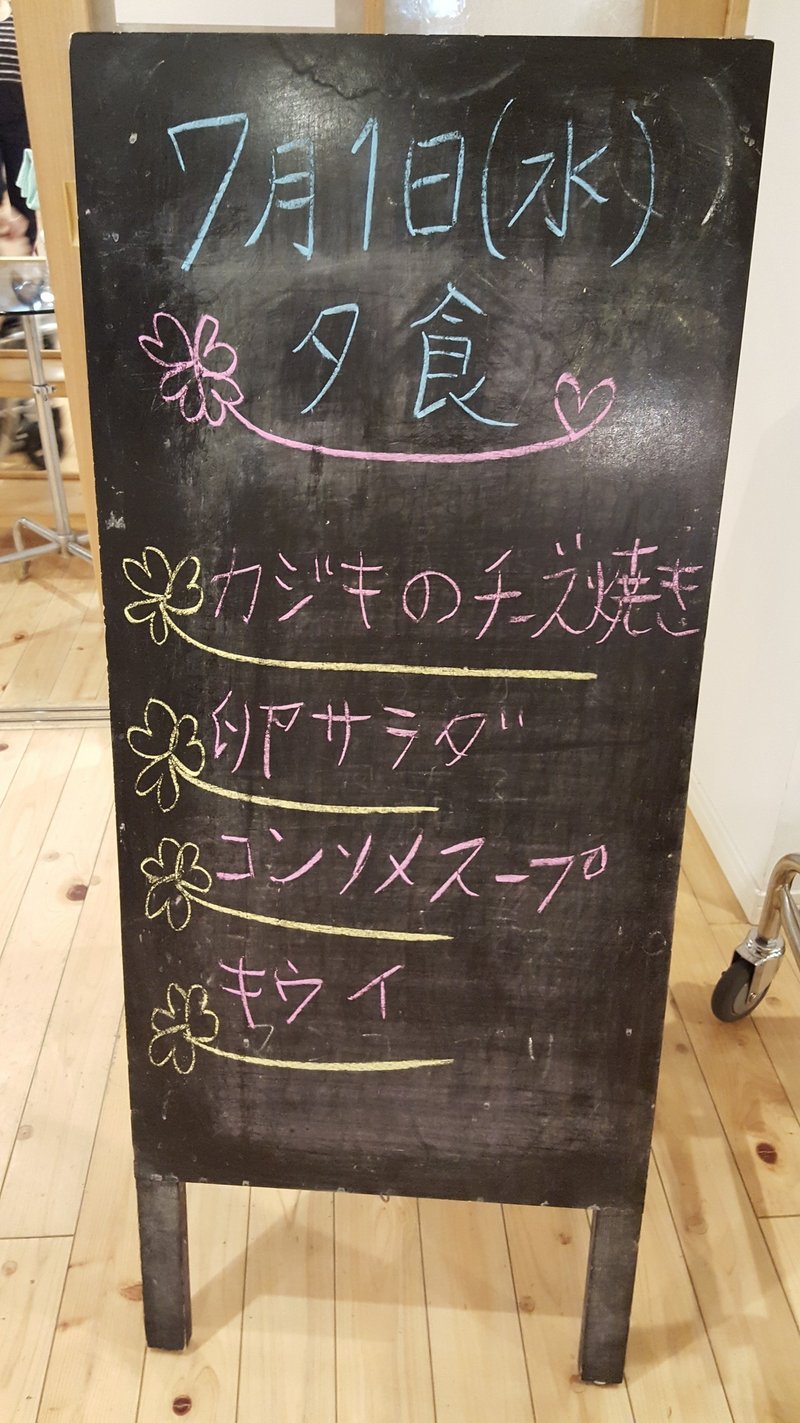 7月1日(水)
夕食
カジキのチーズ焼き
卵サラダ
コンソメスープ
キウイ